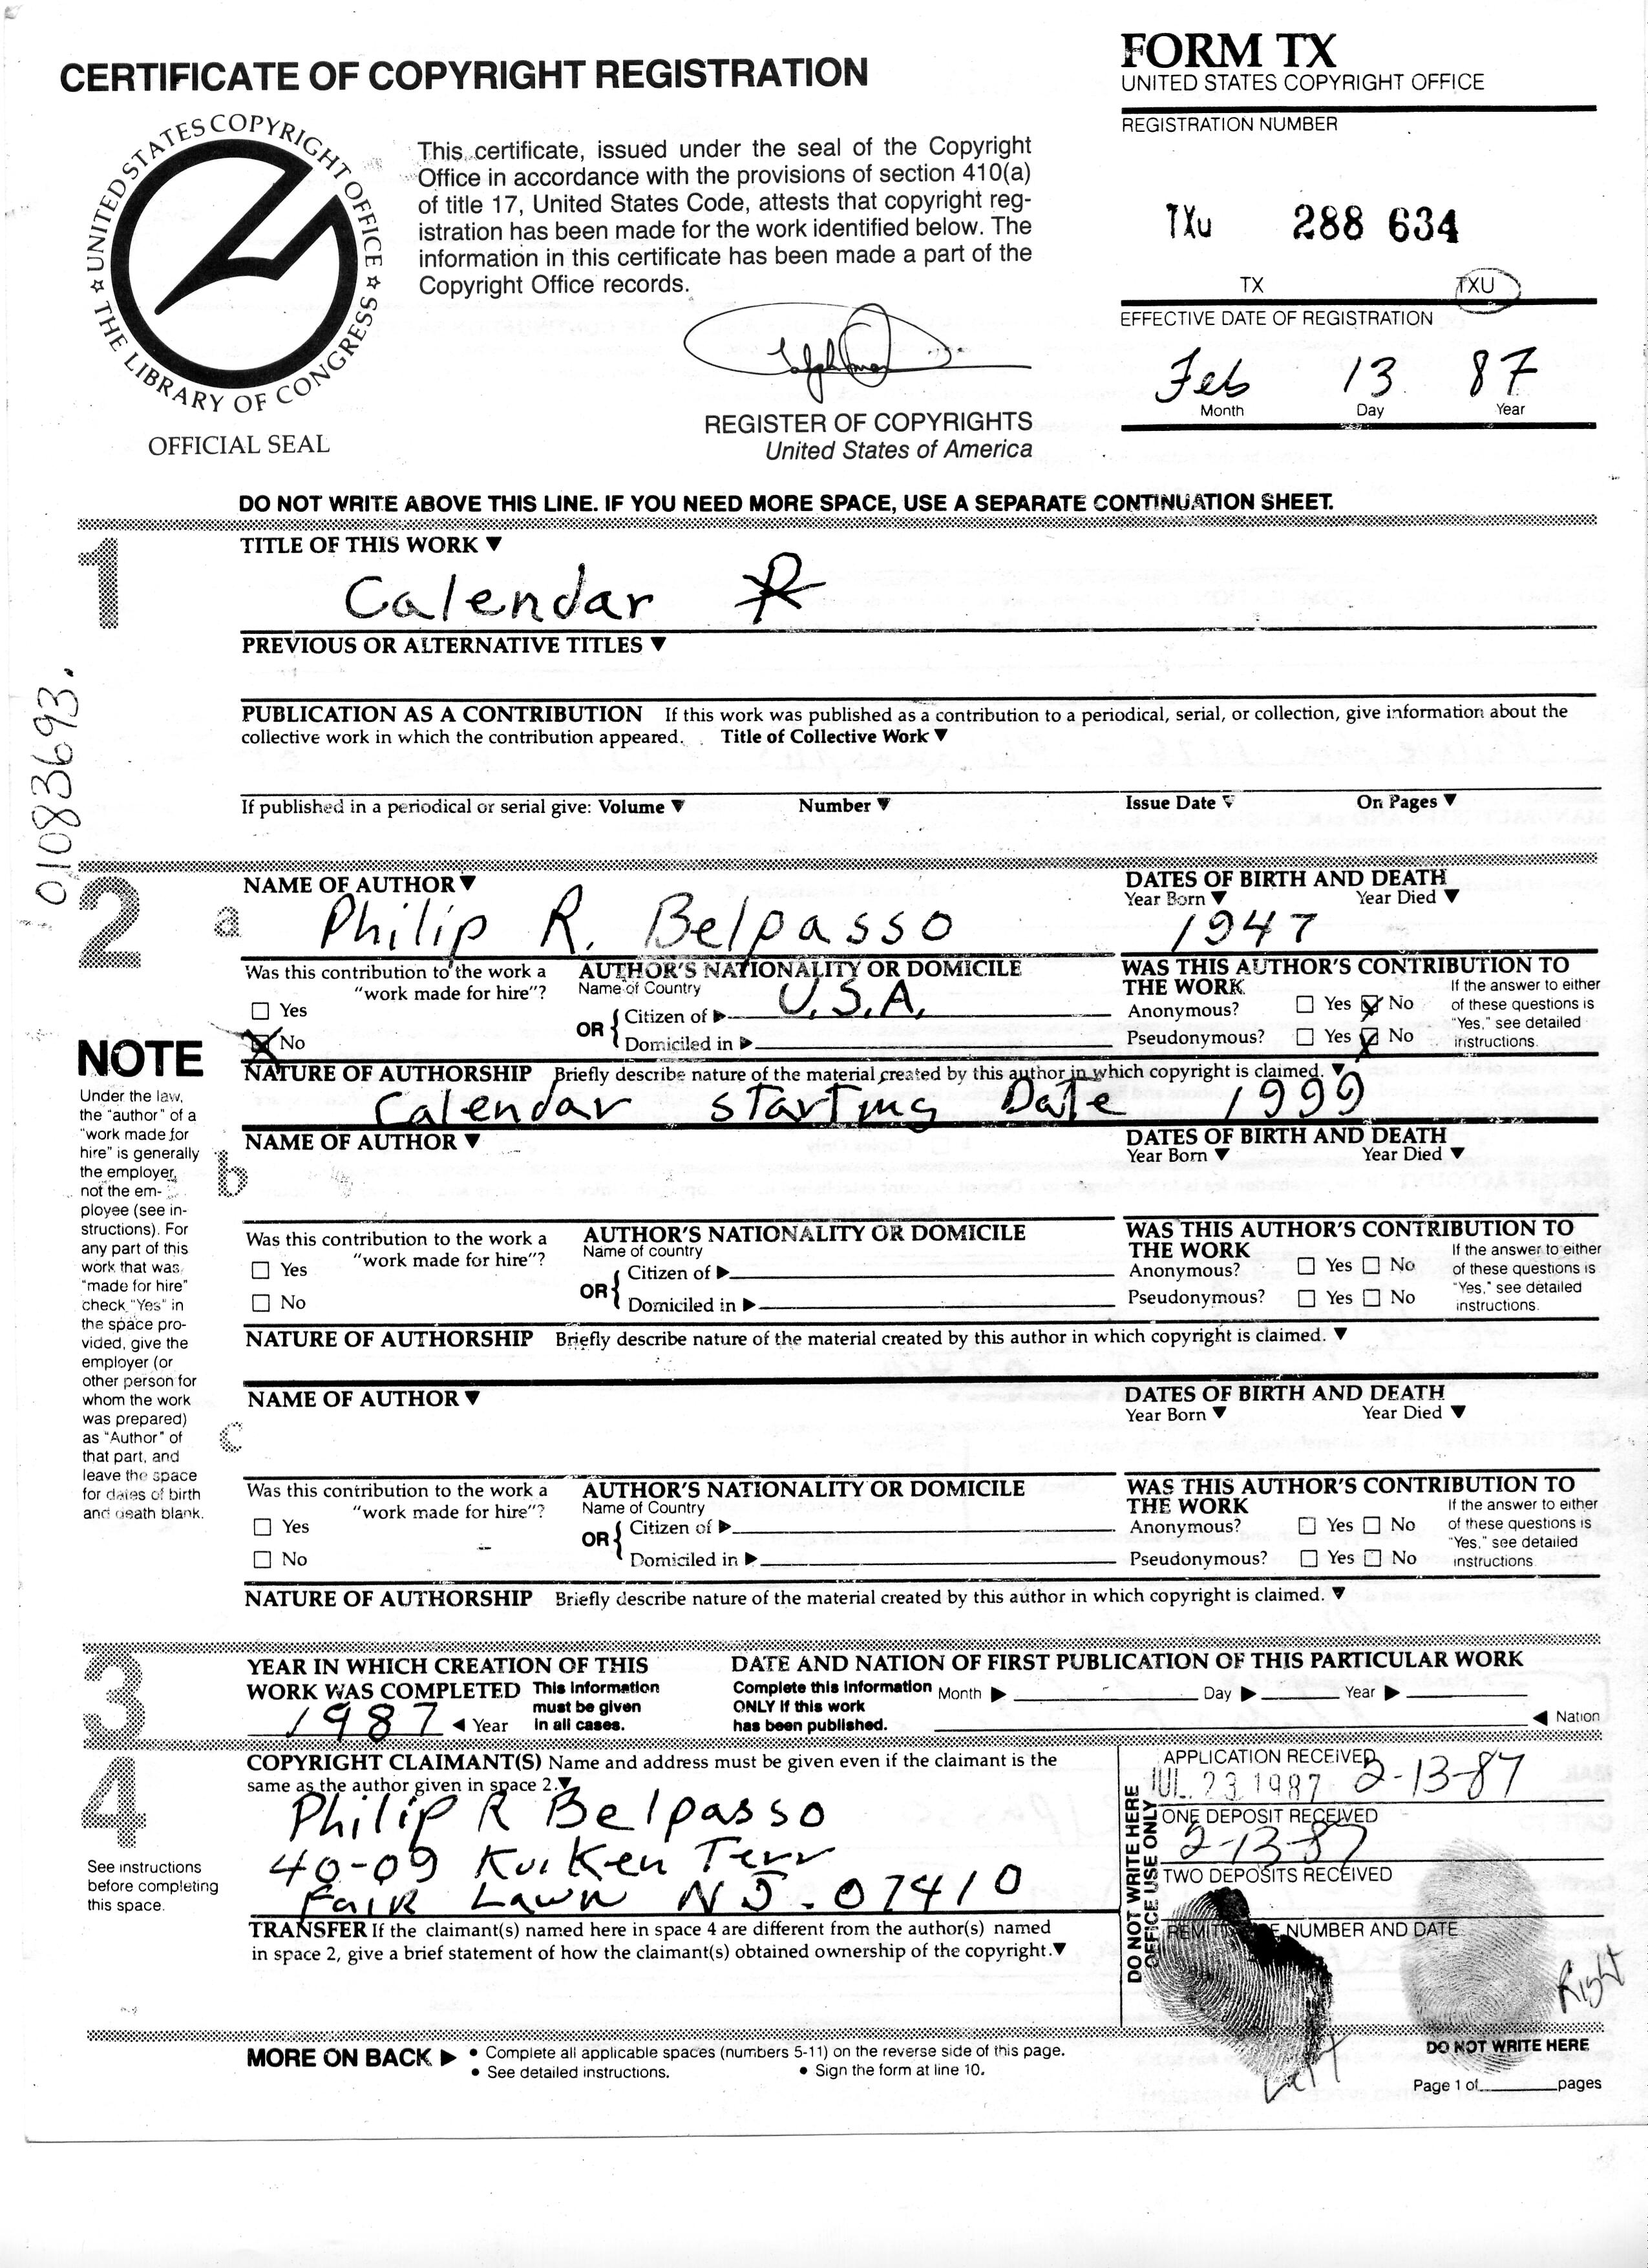 CERTIFICATE OF COPYRIGHT REGISTRATION
FORM TX
UNITED STATES COPYRIGHT OFFICE
REGISTRATION NUMBER
UNITED STATES COPYRIGHT OFFICE
THE LIBRARY OF CONGRESS
OFFICIAL SEAL
This certificate, issued under the seal of the Copyright
Office in accordance with the provisions of section 410(a)
of title 17, United States Code, attests that copyright reg-
istration has been made for the work identified below. The
information in this certificate has been made a part of the
Copyright Office records.
REGISTER OF COPYRIGHTS
United States of America
TXu 288 634
TX TXU
EFFECTIVE DATE OF REGISTRATION
Feb 13 87
Month Day Year
DO NOT WRITE ABOVE THIS LINE. IF YOU NEED MORE SPACE, USE A SEPARATE CONTINUATION SHEET.
1
TITLE OF THIS WORK ▼
Calendar
PREVIOUS OR ALTERNATIVE TITLES ▼
PUBLICATION AS A CONTRIBUTION If this work was published as a contribution to a periodical, serial, or collection, give information about the
collective work in which the contribution appeared. Title of Collective Work ▼
If published in a periodical or serial give: Volume ▼ Number ▼ Issue Date ▼ On Pages ▼
01083693.
2
a
NAME OF AUTHOR ▼
Philip R. Belpasso
DATES OF BIRTH AND DEATH
Year Born ▼ Year Died ▼
1947
Was this contribution to the work a
"work made for hire"?
Yes
No
AUTHOR'S NATIONALITY OR DOMICILE
Name of Country
OR { Citizen of ▶ U.S.A.
Domiciled in ▶
WAS THIS AUTHOR'S CONTRIBUTION TO
THE WORK
Anonymous? Yes No
Pseudonymous? Yes No
If the answer to either
of these questions is
"Yes," see detailed
instructions.
NATURE OF AUTHORSHIP Briefly describe nature of the material created by this author in which copyright is claimed. ▼
Calendar starting Date 1999
NOTE
Under the law,
the "author" of a
"work made for
hire" is generally
the employer,
not the em-
ployee (see in-
structions). For
any part of this
work that was
"made for hire"
check "Yes" in
the space pro-
vided, give the
employer (or
other person for
whom the work
was prepared)
as "Author" of
that part, and
leave the space
for dates of birth
and death blank.
b
NAME OF AUTHOR ▼
DATES OF BIRTH AND DEATH
Year Born ▼ Year Died ▼
Was this contribution to the work a
"work made for hire"?
Yes
No
AUTHOR'S NATIONALITY OR DOMICILE
Name of country
OR { Citizen of ▶
Domiciled in ▶
WAS THIS AUTHOR'S CONTRIBUTION TO
THE WORK
Anonymous? Yes No
Pseudonymous? Yes No
If the answer to either
of these questions is
"Yes," see detailed
instructions.
NATURE OF AUTHORSHIP Briefly describe nature of the material created by this author in which copyright is claimed. ▼
c
NAME OF AUTHOR ▼
DATES OF BIRTH AND DEATH
Year Born ▼ Year Died ▼
Was this contribution to the work a
"work made for hire"?
Yes
No
AUTHOR'S NATIONALITY OR DOMICILE
Name of Country
OR { Citizen of ▶
Domiciled in ▶
WAS THIS AUTHOR'S CONTRIBUTION TO
THE WORK
Anonymous? Yes No
Pseudonymous? Yes No
If the answer to either
of these questions is
"Yes," see detailed
instructions.
NATURE OF AUTHORSHIP Briefly describe nature of the material created by this author in which copyright is claimed. ▼
3
YEAR IN WHICH CREATION OF THIS
WORK WAS COMPLETED This information
must be given
in all cases.
1987 ◀ Year
DATE AND NATION OF FIRST PUBLICATION OF THIS PARTICULAR WORK
Complete this information
ONLY if this work
has been published.
Month ▶ Day ▶ Year ▶
◀ Nation
4
See instructions
before completing
this space.
COPYRIGHT CLAIMANT(S) Name and address must be given even if the claimant is the
same as the author given in space 2.▼
Philip R Belpasso
40-09 Kuiken Terr
Fair Lawn NJ. 07410
TRANSFER If the claimant(s) named here in space 4 are different from the author(s) named
in space 2, give a brief statement of how the claimant(s) obtained ownership of the copyright.▼
DO NOT WRITE HERE
OFFICE USE ONLY
APPLICATION RECEIVED
JUL 23 1987 2-13-87
ONE DEPOSIT RECEIVED
2-13-87
TWO DEPOSITS RECEIVED
NUMBER AND DATE
Right
Left
MORE ON BACK ▶
• Complete all applicable spaces (numbers 5-11) on the reverse side of this page.
• See detailed instructions. • Sign the form at line 10.
DO NOT WRITE HERE
Page 1 of pages